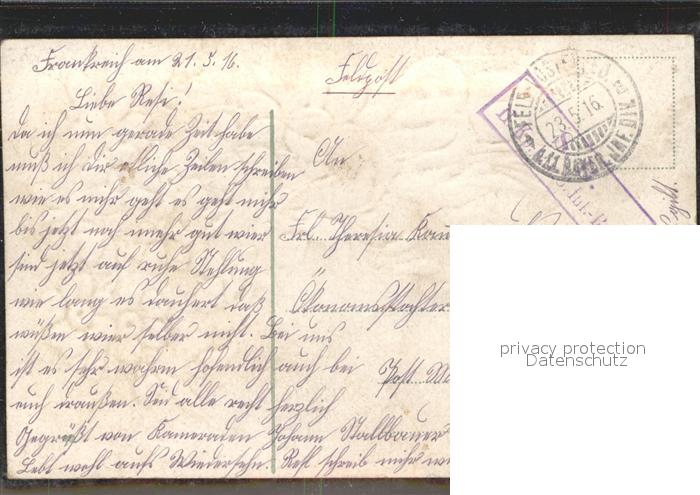 Frankreich am 21.5.16.
Feldpost
Liebe Resi!
Da ich nun gerade Zeit habe
muß ich Dir etliche Zeilen schreiben
wie es mihr geht es geht mihr
bis jetzt noch imehr gut wier
sind jetzt auf ruhe Stellung
wie lang es dauhert daß
wüßen wier selber nicht. Bei uns
ist es sehr wahrm hofendlich auch bei
euch draußen. Seid alle recht herzlich
Gegrüßt von Kameraden Johann Stallbauer
Lebt wohl aufs Wiedersehn. Resl schreib mihr
An
Frl. Theresia
Ökonomspächter
Post
23.5.16.
privacy protection
Datenschutz